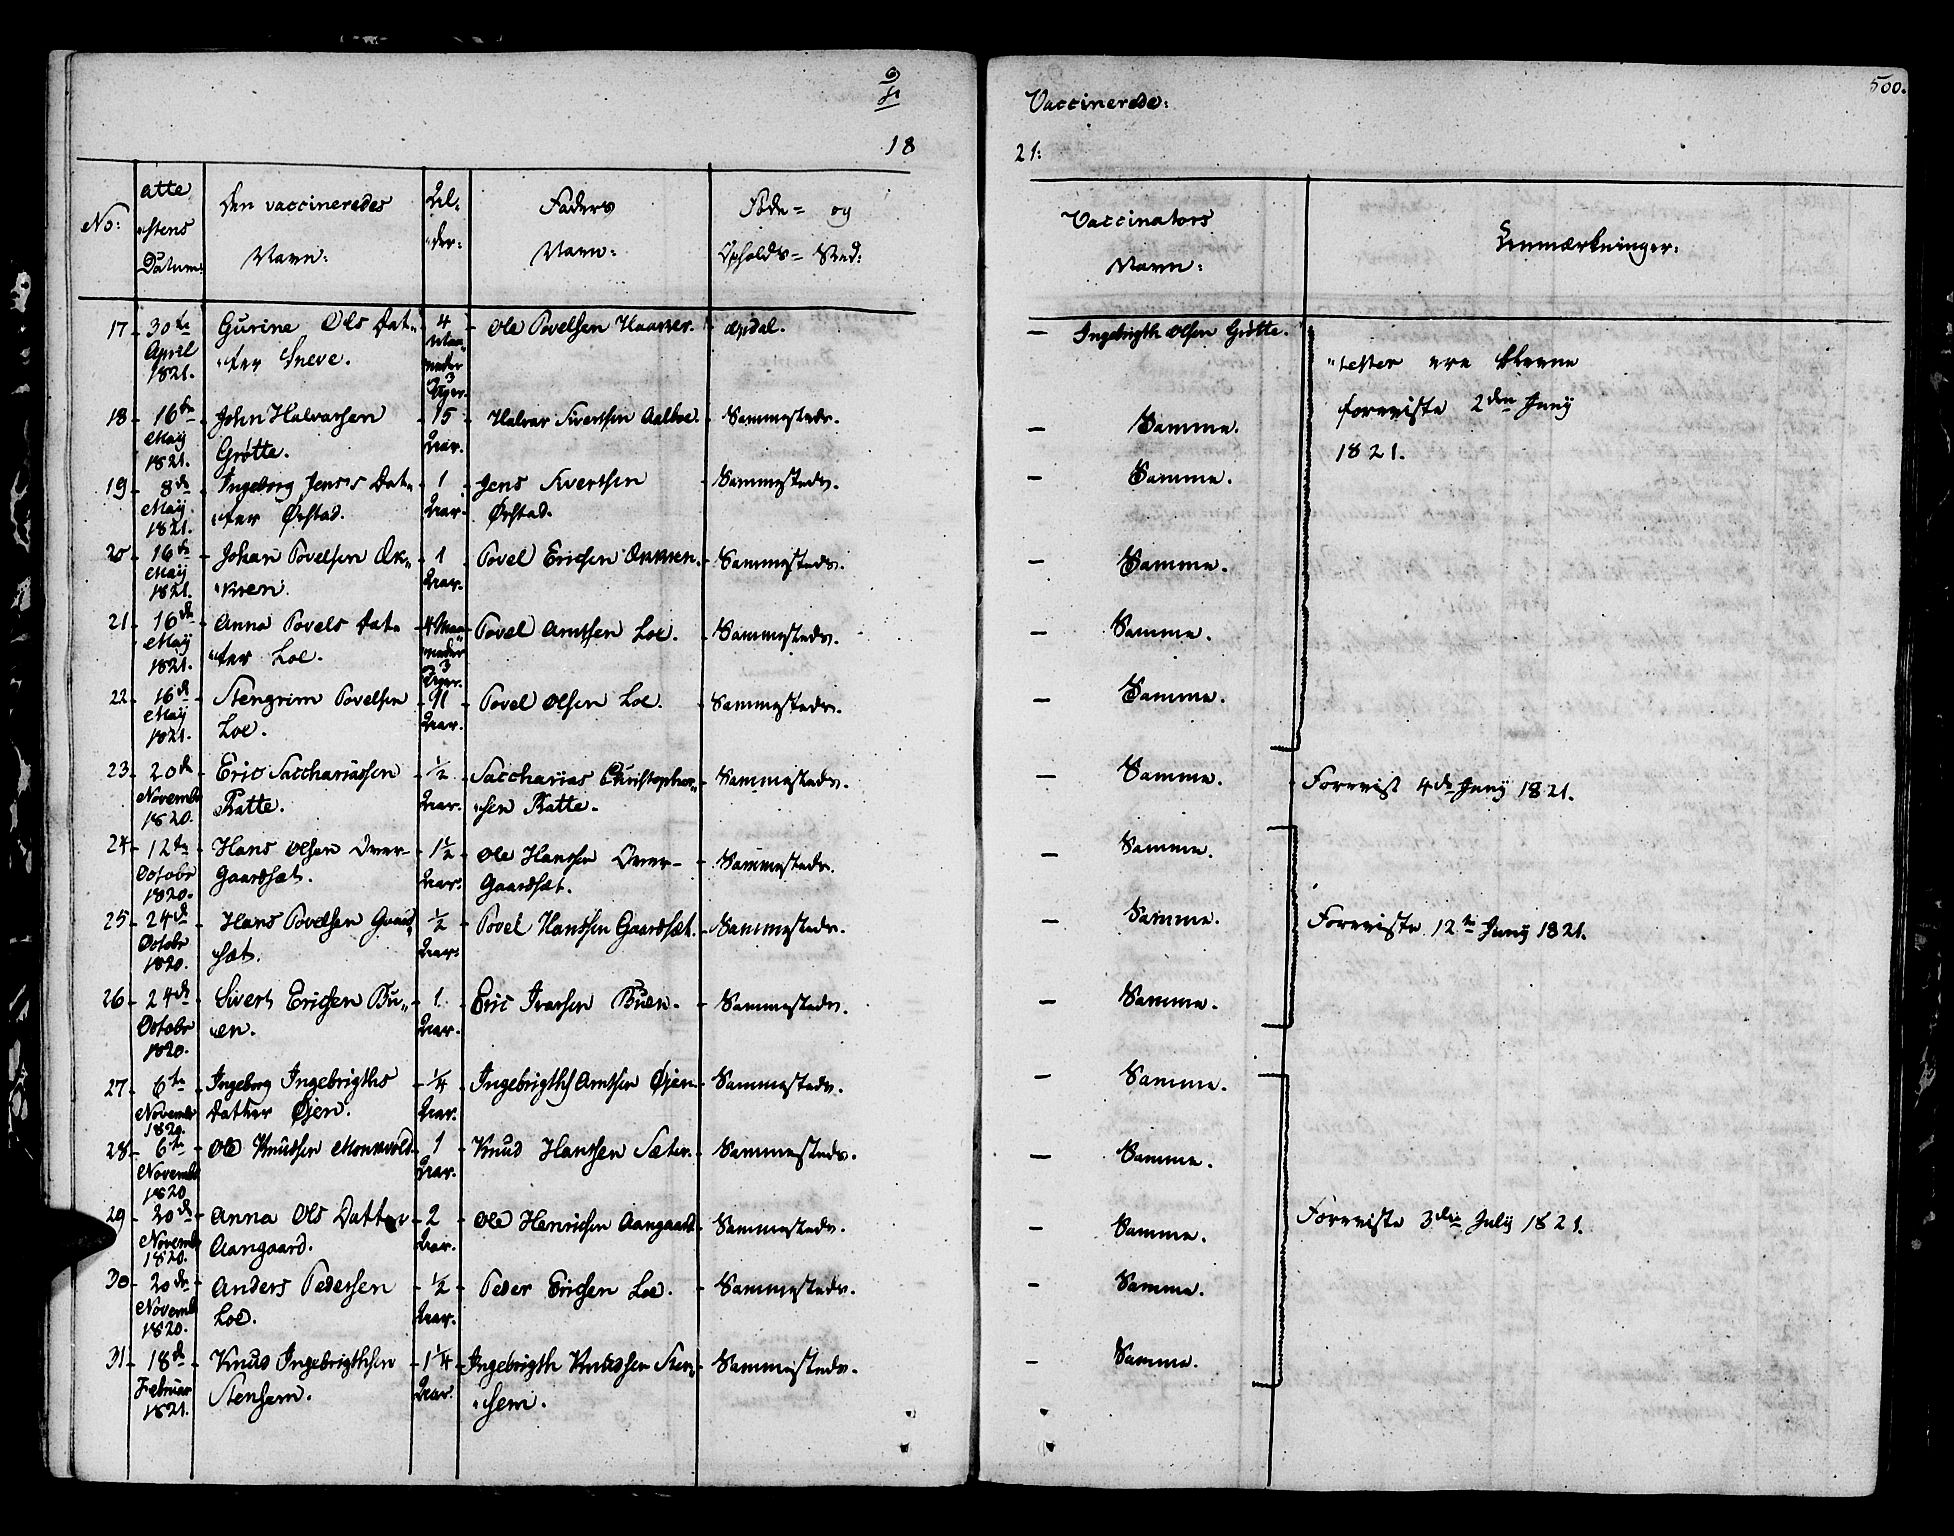 6
18
Vaccinerede:
21:
500.
No:
atte
"stens
Datum:
Den vaccineredes
Navn:
Al-
"der:
Faders
Navn:
Føde- og
Opholds- Sted:
Vaccinators
Navn:
Anmærkninger:
17 - 30te April 1821. - Gurine Ols Dat- "ter Sneve. - 4 Maa- "neder 3 Uger. - Ole Povelsen - Opdal. - Ingebrigth Olsen Grøtte.
"tester ere blevne
foreviste 2den Juny
1821.
18 - 16de May 1821. - John Halvorsen Grøtte. - 15 Aar. - Halvor Sivertsen Aalboe. - Sammesteds. - Samme.
19 - 8de May 1821. - Ingeborg Jens's Dat- "ter Ørstad. - 1 Aar. - Jens Sivertsen Ørstad. - Sammesteds. - Samme.
20 - 16de May 1821. - Johan Povelsen - 1 Aar. - Povel Ericsen - Sammesteds. - Samme.
21 - 16de May 1821. - Anna Povels Dat- "ter Loe. - 4 Maa- "neder 3 Uger. - Povel Arntsen Loe. - Sammesteds. - Samme.
22 - 16de May 1821. - Stengrim Povelsen Loe. - 11 Aar. - Povel Olsen Loe. - Sammesteds. - Samme.
23 - 20de Novembr 1820. - Eric Sacchariassen Ratte. - 1/2 Aar. - Saccharias Christopher- "sen Ratte. - Sammesteds. - Samme. - Forevist 4de Juny 1821.
24 - 12te Octobr 1820. - Hans Olsen Over- Gaardsæt. - 1 1/2 Aar. - Ole Hansen Over- Gaardsæt. - Sammesteds. - Samme.
25 - 24de Octobr 1820. - Hans Povelsen Gaard- sæt. - 1/2 Aar. - Povel Handsen Gaardsæt. - Sammesteds. - Samme. Foreviste 12te Juny 1821.
26 - 24de Octobr 1820. - Sivert Ericsen Bu- "en. - 1 Aar. - Eric Ivarsen Buen. - Sammesteds. - Samme.
27 - 6te Novembr 1820. - Ingeborg Ingebrigths Datter Øjen. - 1/4 Aar. - Ingebrigth Arntsen Øjen - Sammesteds. - Samme.
28 - 6te Novembr 1820 - Ole Knudsen - 1 Aar. - Knud Hansen Sæter. - Sammesteds. - Samme.
29 - 20de Novembr 1820. - Anna Ols Datter Aangaard. - 2 Aar. - Ole Henricsen Aangaard - Sammesteds. - Samme. Foreviste 3die July 1821.
30 - 20de Novembr 1820. - Anders Pedersen Loe. - 1/2 Aar. - Peder Ericsen Loe. - Sammesteds. - Samme.
31 - 18de Februar 1821. - Knud Ingebrigthsen Stensem. - 1 1/4 Aar. - Ingebrigth Knudsen Sten- "sem. - Sammesteds. - Samme.